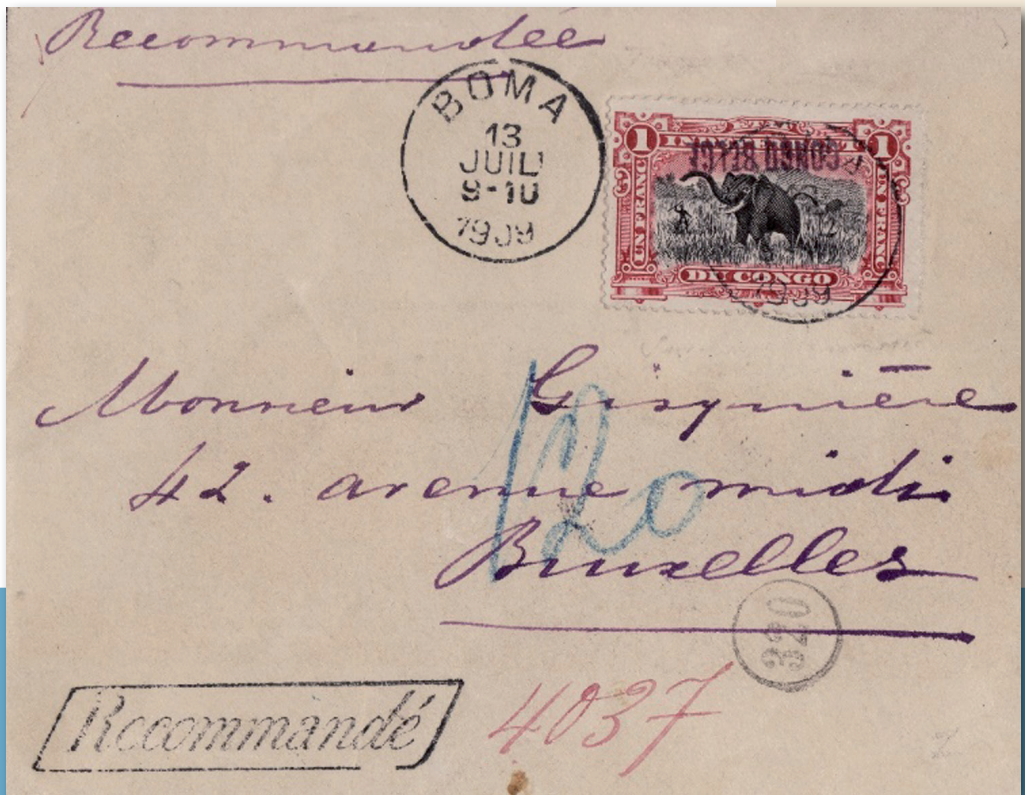 Recommandée
BOMA
13
JUIL
9-10
1909
1 1
CONGO BELGE
UN FRANC UN FRANC
DE CONGO
1909
Monsieur Gisquière
42. avenue midi
Bruxelles
120
320
Recommandé 4037